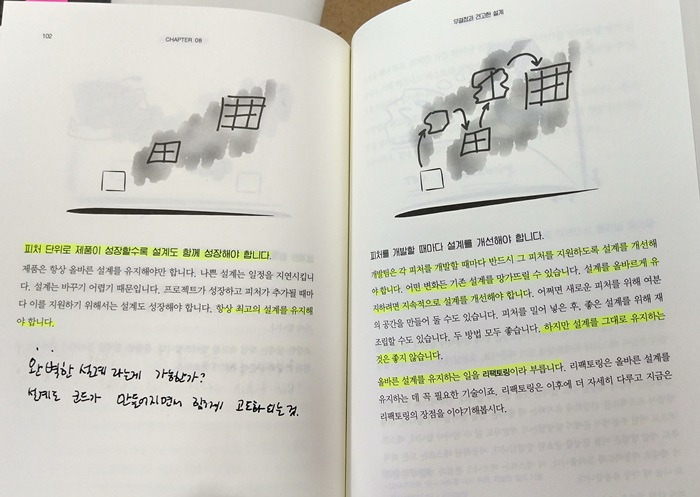 102
CHAPTER 08
피처 단위로 제품이 성장할수록 설계도 함께 성장해야 합니다.
제품은 항상 올바른 설계를 유지해야만 합니다. 나쁜 설계는 일정을 지연시킵니
다. 설계는 바꾸기 어렵기 때문입니다. 프로젝트가 성장하고 피처가 추가될 때마
다 이를 지원하기 위해서는 설계도 성장해야 합니다. 항상 최고의 설계를 유지해
야 합니다.
완벽한 설계라는게 가능한가?
설계도 코드가 만들어지면서 함께 고도화되는것.
무결점과 견고한 설계
피처를 개발할 때마다 설계를 개선해야 합니다.
개발팀은 각 피처를 개발할 때마다 반드시 그 피처를 지원하도록 설계를 개선해
야 합니다. 어떤 변화든 기존 설계를 망가뜨릴 수 있습니다. 설계를 올바르게 유
지하려면 지속적으로 설계를 개선해야 합니다. 어쩌면 새로운 피처를 위해 여분
의 공간을 만들어 둘 수도 있습니다. 피처를 밀어 넣은 후, 좋은 설계를 위해 재
조립할 수도 있습니다. 두 방법 모두 좋습니다. 하지만 설계를 그대로 유지하는
것은 좋지 않습니다.
올바른 설계를 유지하는 일을 리팩토링이라 부릅니다. 리팩토링은 올바른 설계를
유지하는 데 꼭 필요한 기술이죠. 리팩토링은 이후에 더 자세히 다루고 지금은
리팩토링의 장점을 이야기해봅시다.